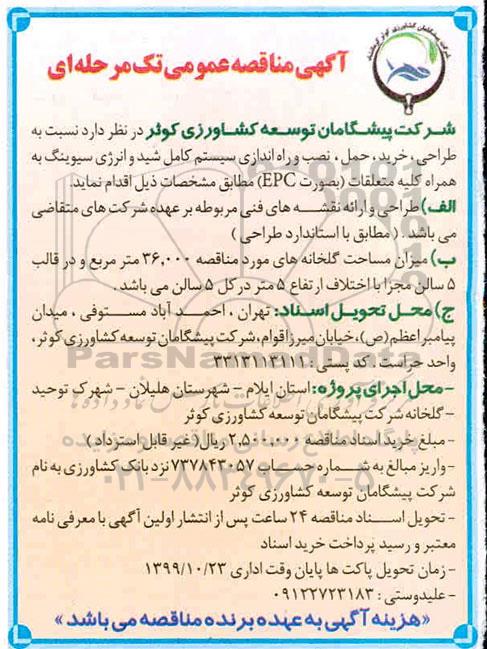 آگهی مناقصه عمومی تک مرحله ای
شرکت پیشگامان توسعه کشاورزی کوثر در نظر دارد نسبت به
طراحی، خرید، حمل ، نصب و راه اندازی سیستم کامل شید و انرژی سیوینگ به
همراه کلیه متعلقات (بصورت EPC) مطابق مشخصات ذیل اقدام نماید.
الف) طراحی و ارائه نقشه های فنی مربوطه بر عهده شرکت های متقاضی
می باشد . ( مطابق با استاندارد طراحی )
ب) میزان مساحت گلخانه های مورد مناقصه ۳۶,۰۰۰ متر مربع و در قالب
۵ سالن مجزا با اختلاف ارتفاع ۵ متر در کل ۵ سالن می باشد .
ج) محل تحویل اسناد: تهران ، احمد آباد مستوفی ، میدان
پیامبر اعظم(ص)، خیابان میرزا قوام، شرکت پیشگامان توسعه کشاورزی کوثر،
واحد حراست . کد پستی : ۳۳۱۳۱۱۳۱۱۱
- محل اجرای پروژه: استان ایلام - شهرستان هلیلان - شهرک توحید
- گلخانه شرکت پیشگامان توسعه کشاورزی کوثر
- مبلغ خرید اسناد مناقصه ۲,۵۰۰,۰۰۰ ریال (غیر قابل استرداد )
- واریز مبالغ به شماره حساب ۷۳۷۸۴۳۰۵۷ نزد بانک کشاورزی به نام
شرکت پیشگامان توسعه کشاورزی کوثر
- تحویل اسناد مناقصه ۲۴ ساعت پس از انتشار اولین آگهی با معرفی نامه
معتبر و رسید پرداخت خرید اسناد
- زمان تحویل پاکت ها پایان وقت اداری ۱۳۹۹/۱۰/۲۳
- علیدوستی : ۰۹۱۲۲۷۲۳۱۸۳
«هزینه آگهی به عهده برنده مناقصه می باشد »
ParsNamadData
۰۲۱-۸۸۳۴۹۶۷۰-۵